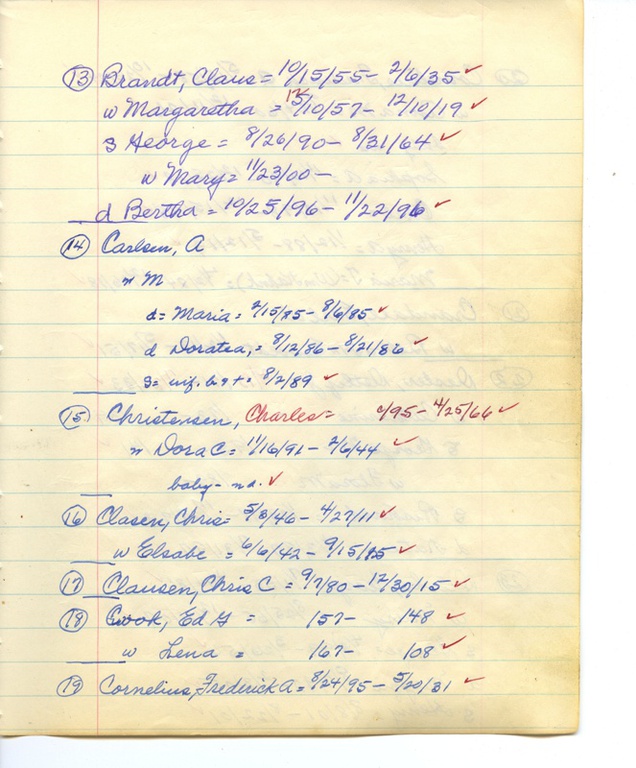 (13) Brandt, Claus = 10/15/55 - 2/6/35 ✓
w Margaretha = 12/10/57 - 12/10/19 ✓
s George = 8/26/90 - 8/31/64 ✓
w Mary = 11/23/00 -
d Bertha = 10/25/96 - 11/22/96 ✓
(14) Carlsen, A
w M
d = Maria = 2/15/85 - 8/6/85 ✓
d Doratea, = 8/12/86 - 8/21/86 ✓
s = inf. b & + = 8/2/89 ✓
(15) Christensen, Charles = /95 - 4/25/66 ✓
w Dora C = 11/16/91 - 2/6/44 ✓
baby - nd. ✓
(16) Clasen, Chris = 5/8/46 - 4/27/11 ✓
w Elsabe = 6/6/42 - 9/15/25 ✓
(17) Clausen, Chris C = 9/7/80 - 12/30/15 ✓
(18) Cook, Ed G = 157- 148 ✓
w Lena = 167- 108 ✓
(19) Cornelius, Frederick A = 8/24/95 - 5/20/31 ✓